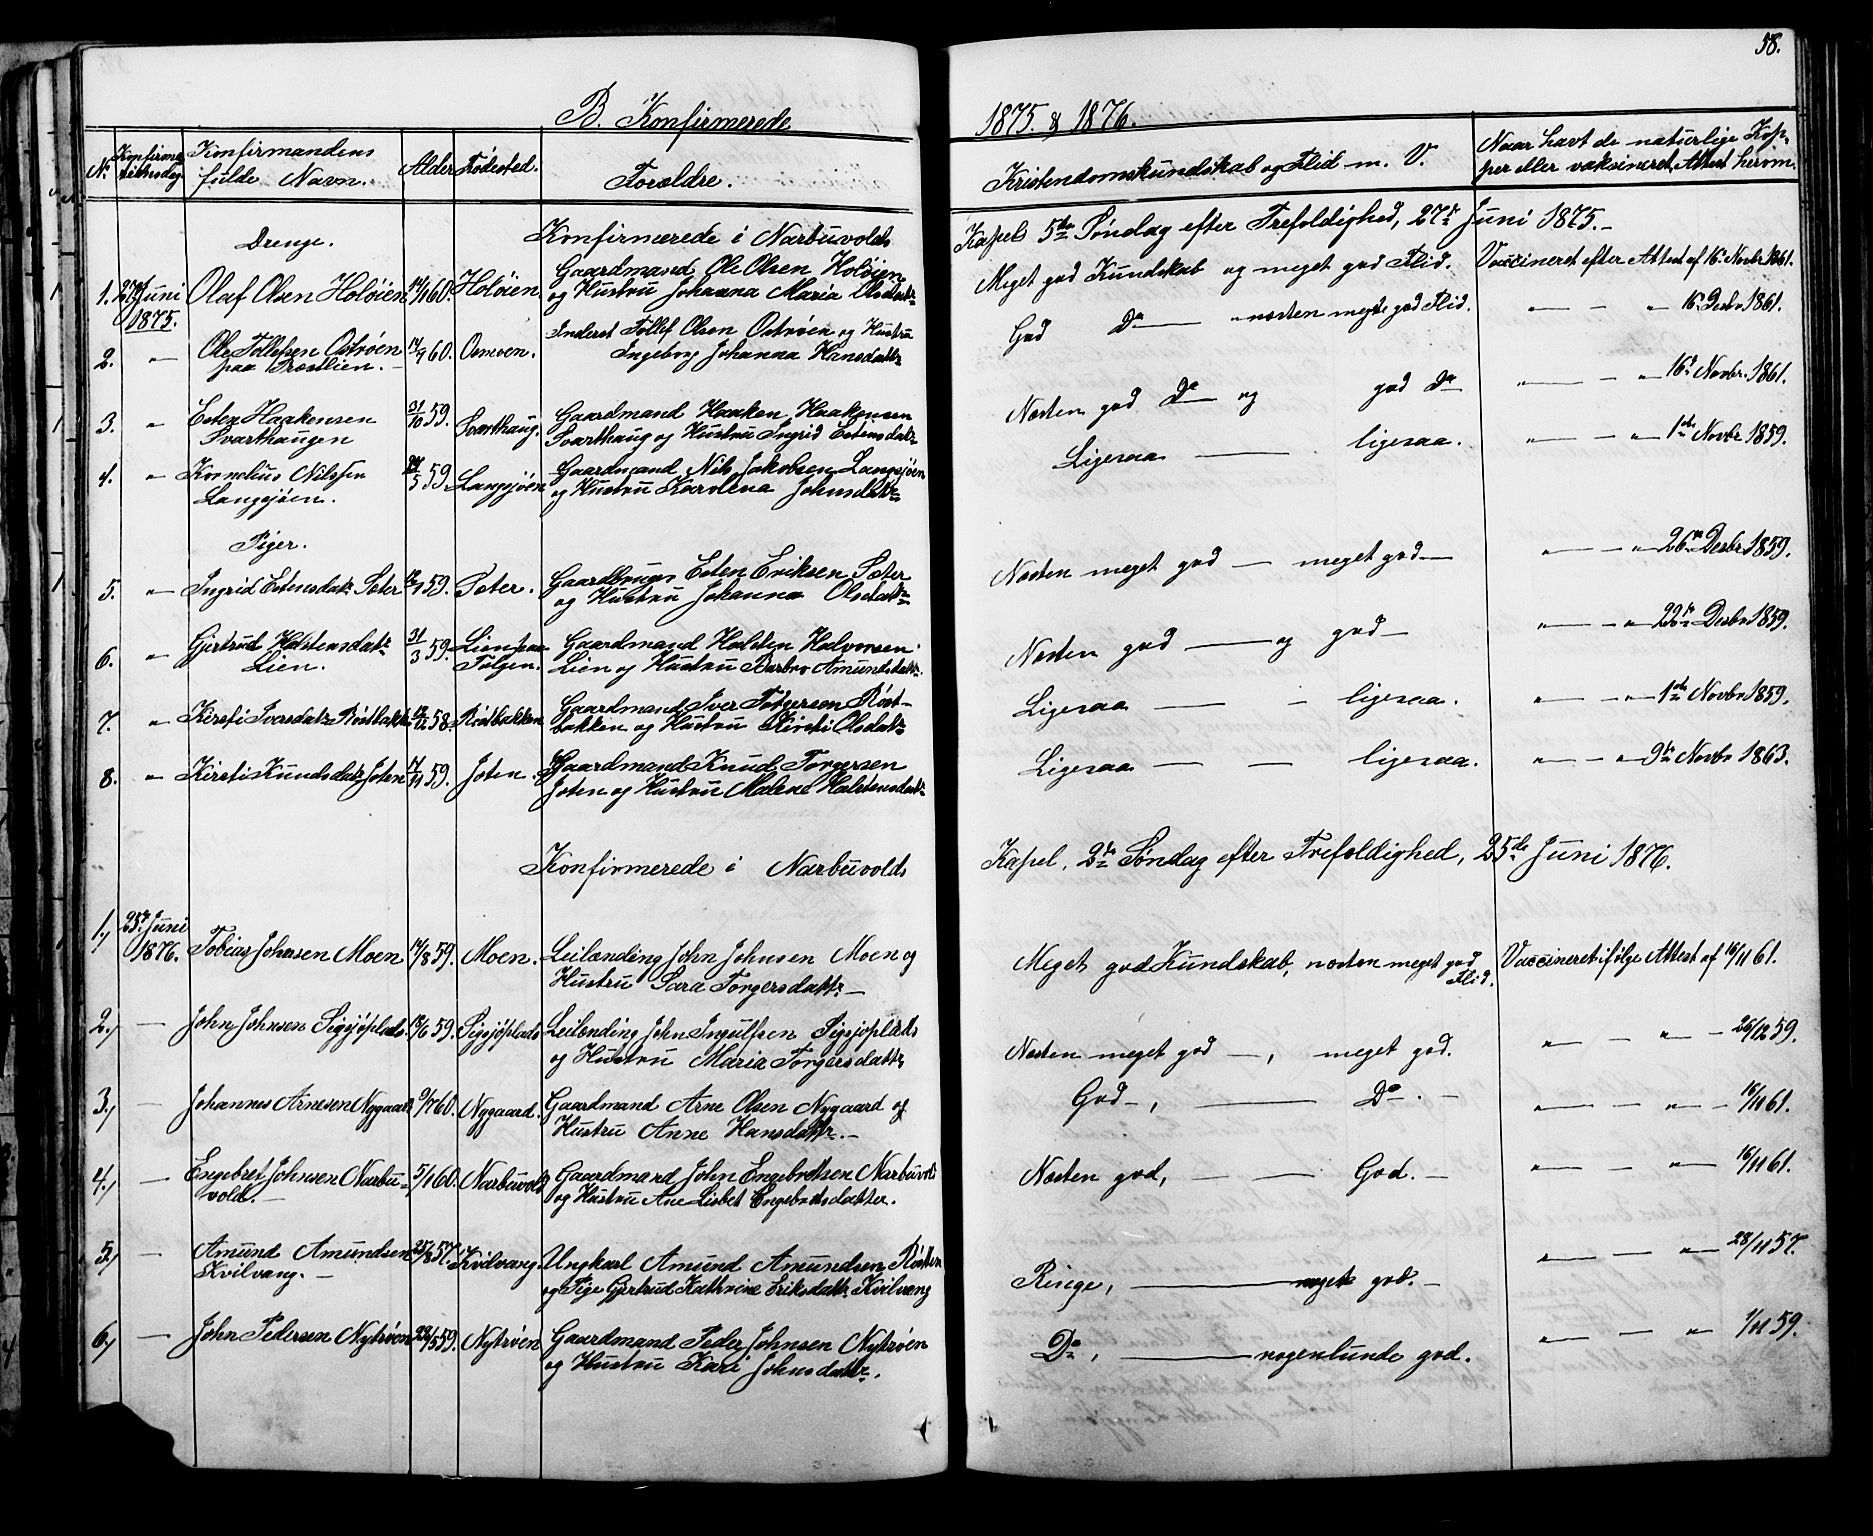 58.
B. Konfirmerede 1875. & 1876.
No
Konfirmationsdag
Konfirmandens fulde Navn.
Alder
Fødested.
Forældre.
Kristendomskundskab og Flid m. V.
Naar havt de naturlige Kopper eller vaksineret, Attest herom.
Drenge.
Konfirmerede i Narbuvolds Kapel 5te Søndag efter Trefoldighed, 27de Juni 1875.
1. 27de Juni 1875. Olaf Olsen Holøien 60. Holøien. Gaardmand Ole Olsen Holøien
og Hustru Johanna Maria Olsdatr
Meget god Kundskab og meget god Flid. Vaccineret efter Attest af 16. Novbr 1861.
2. " Ole Tollefsen Ostrøen 60. Osmoen. Inderst Tollef Olsen Ostrøen og Hustru
paa Prostlien. Ingeborg Johanna Hansdatr
God Do næsten meget god Flid. " — " 16. Desbr 1861.
3. " Esten Haakensen 31/10 59. Svarthaug. Gaardmand Haaken Haakensen
Svarthaugen Svarthaug og Hustru Ingrid Estensdatr
Næsten god Do og god Do " — " 16. Novbr. 1861.
4. " Kornelius Nilssen 59. Langsjøen Gaardmand Nils Jakobsen Langsjøen
Langsjøen. og Hustru Karolena Johnsdatr
Ligesaa — ligesaa. " — " 1ste Novbr 1859.
Piger.
5. " Ingrid Estensdatr Sæter 59. Sæter. Gaardbruger Esten Eriksen Sæter
og Hustru Johanna Olsdatr
Næsten meget god — meget god — " — " 26. Desbr 1859.
6. " Gjertrud Halstensdatr 31/3 59. Lien paa Gaardmand Halsten Halvorsen
Lien. Tolgen. Lien og Hustru Barbro Amundsdatr.
Næsten god — og god — " — " 22. Desbr 1859.
7. " Kirsti Iversdatr Røstbakk 58. Røstbakken Gaardmand Iver Torgersen Røst-
bakken og Hustru Kirsti Olsdatr
Ligesaa — ligesaa. " — " 1ste Novbr 1859.
8. " Kirsti Knudsdatr Joten 17/11 59. Joten. Gaardmand Knud Torgersen
Joten og Hustru Malene Halstensdatr
Ligesaa — ligesaa. " — " 9de Novbr 1863.
Konfirmerede i Narbuvolds Kapel, 2den Søndag efter Trefoldighed, 25de Juni 1876.
1.) 25de Juni 1876. Tobias Johnsen Moen 17/8 59. Moen. Leilænding John Johnsen Moen og
Hustru Sara Torgersdattr. —
Meget god Kundskab, næsten meget god Flid. Vaccineret ifølge Attest af 16/11 61.
2.) — John Johnsen Sigsjøplads. 59. Sigsjøplads Leilænding John Ingulfsen Sigsjøplads
og Hustru Maria Torgersdattr
Næsten meget god —, meget god. " — " — 26/12 59.
3.) — Johannes Arnesen Nygaard 9/7 60. Nygaard. Gaardmand Arne Olsen Nygaard og
Hustru Anne Hansdattr. —
God —, — Do. — " — " — 16/11 61.
4.) — Engebret Johnsen Narbu- 5/1 60. Narbuvold Gaardmand John Engebretsen Narbuvold
vold. — og Hustru Ane Lisbet Engebretsdatter.
Næsten god, — — God. — " — " — 16/11 61.
5.) — Amund Amundsen 25/8 57. Kvilvang. Ungkarl Amund Amundsen Røsten
Kvilvang. — og Pige Gjertrud Kathrine Eriksdattr Kvilvang
Ringe, — meget god. — " — " — 28/11 57.
6.) — John Pedersen Nytrøen 29/5 59. Nytrøen Gaardmand Peder Johnsen Nytrøen
og Hustru Kari Johnsdattr.
Do, — nogenlunde god. " — " 1/11 59.